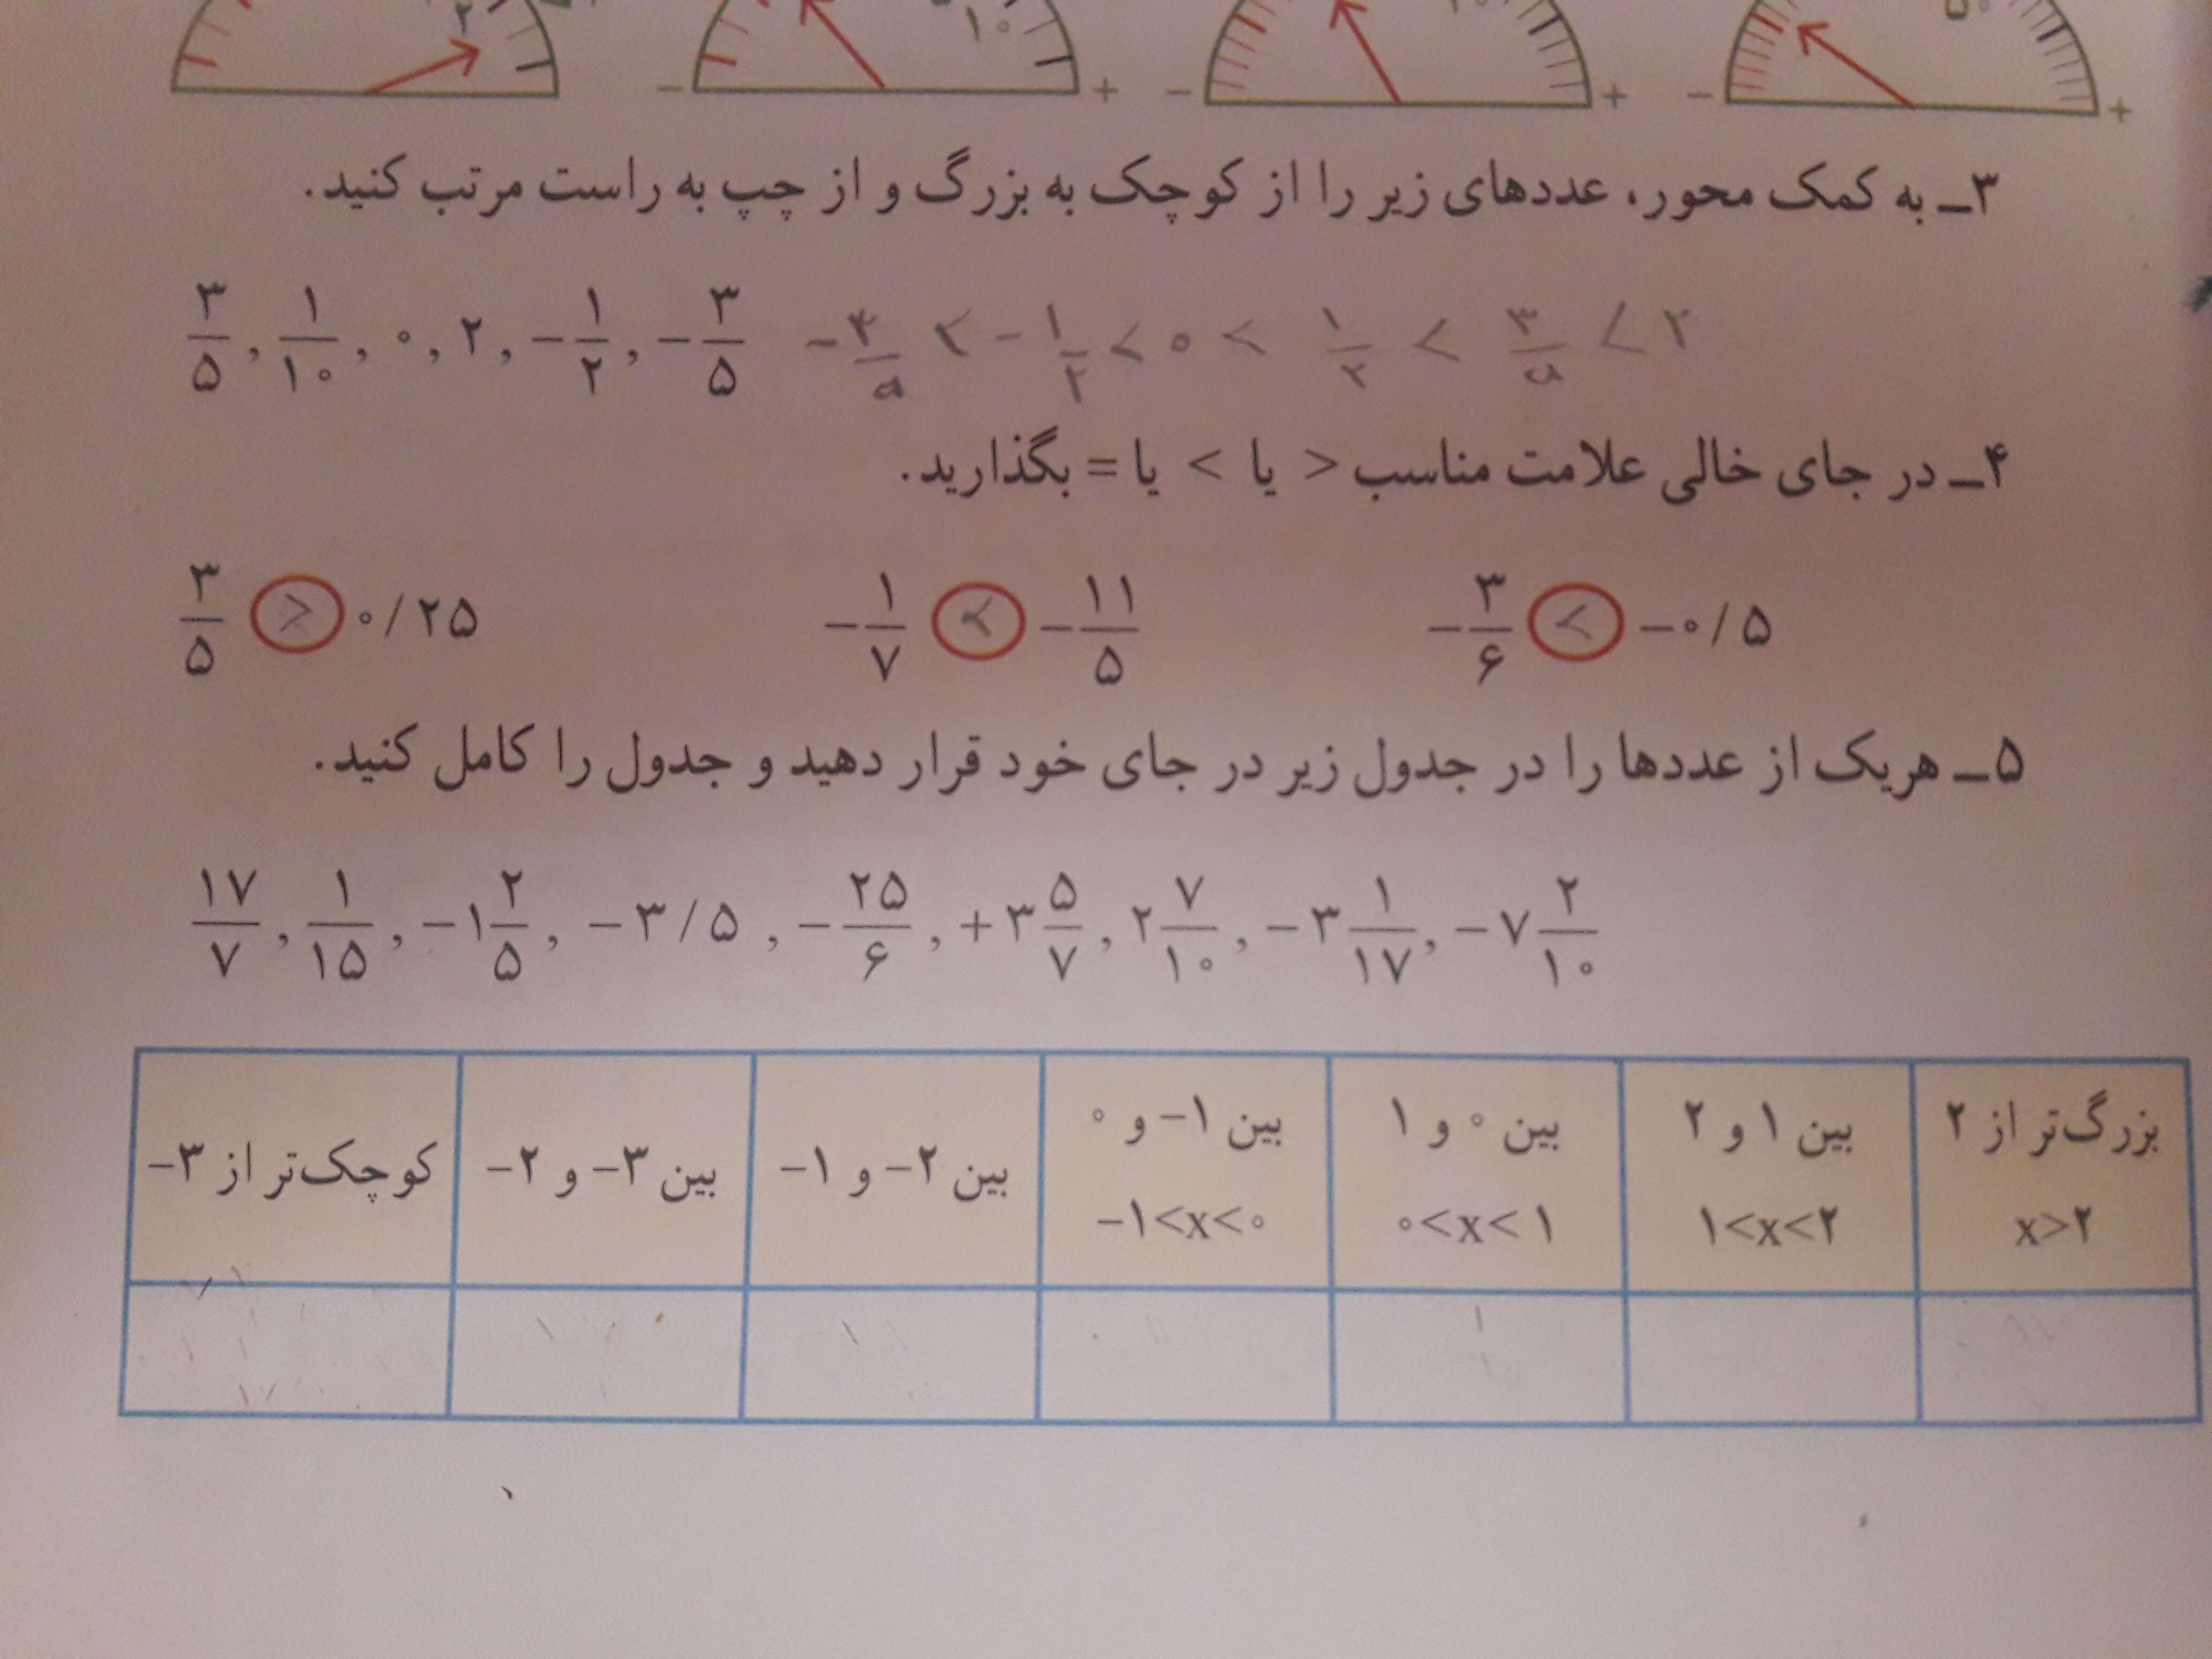 ۲ ۱۰ ۵۰
− + − + − +
۳ــ به کمک محور، عددهای زیر را از کوچک به بزرگ و از چپ به راست مرتب کنید.
۳/۵ , ۱/۱۰ , ۰ , ۲ , −۱/۲ , −۳/۵ −۳/۵ < −۱/۲ < ۰ < ۱/۲ < ۳/۵ < ۲
۴ــ در جای خالی علامت مناسب > یا < یا = بگذارید.
۳/۵ > ۰/۲۵ −۱/۷ < −۱۱/۵ −۳/۶ < −۰/۵
۵ــ هریک از عددها را در جدول زیر در جای خود قرار دهید و جدول را کامل کنید.
۱۷/۷ , ۱/۱۵ , −۱ ۲/۵ , −۳/۵ , −۲۵/۶ , +۳ ۵/۷ , ۲ ۷/۱۰ , −۳ ۱/۱۷ , −۷ ۲/۱۰
بزرگ‌تر از ۲
x>۲
بین ۱ و ۲
۱<x<۲
بین ۰ و ۱
۰<x<۱
بین ۱− و ۰
−۱<x<۰
بین ۲− و ۱−
بین ۳− و ۲−
کوچک‌تر از ۳−